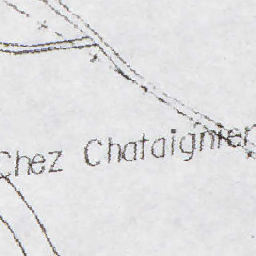 Chez Chataignier